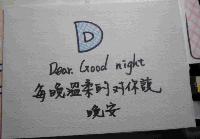 D
Dear. Good night
每晚溫柔的对你說
晚安